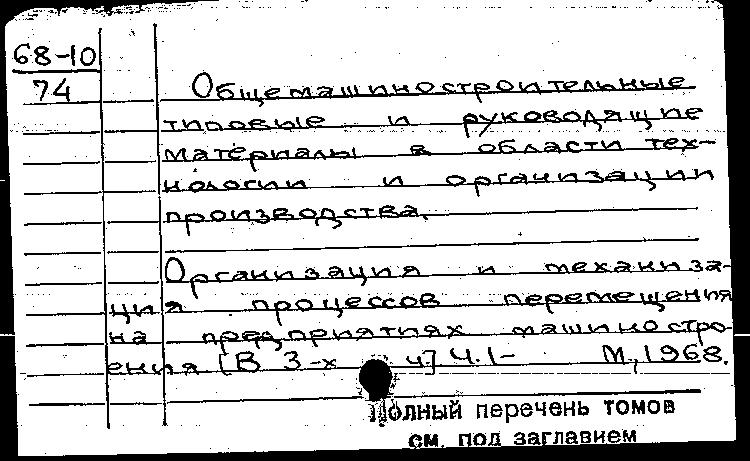 68-10
74
Общемашиностроительные
типовые и руководящие
материалы в области тех-
нологии и организации
производства.
Организация и механиза-
ция процессов перемещения
на предприятиях машиностро-
ения [В 3-х ч] Ч.1- М, 1968.
Полный перечень томов
см. под заглавием